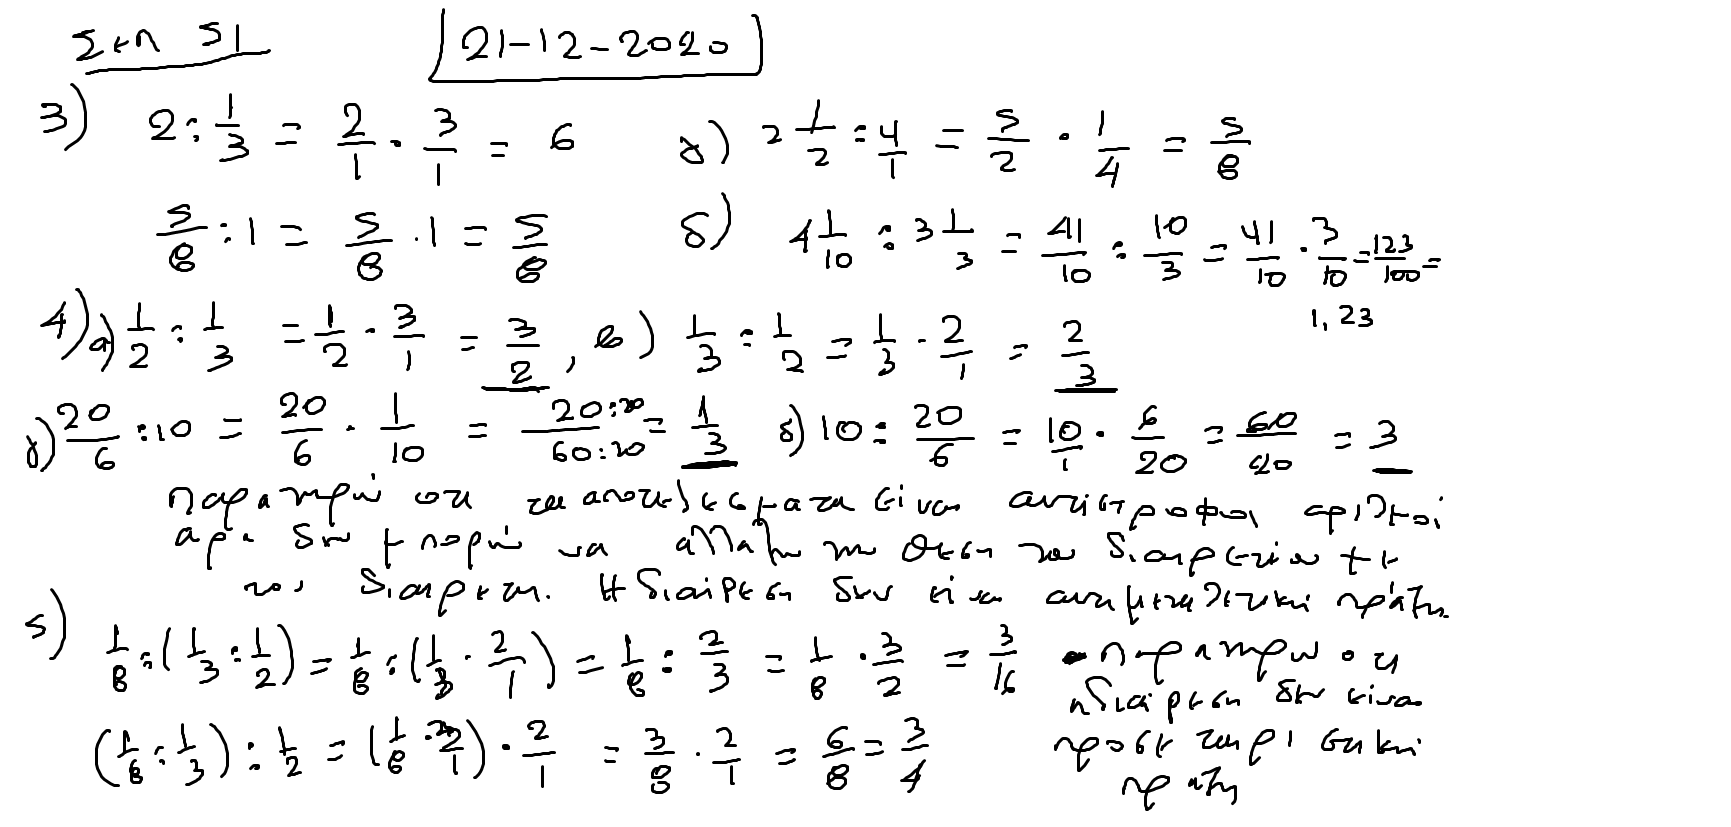 Σελ 51 21-12-2020
3) 2 : 1/3 = 2/1 · 3/1 = 6 γ) 2 1/2 : 4/1 = 5/2 · 1/4 = 5/8
5/8 : 1 = 5/8 · 1 = 5/8 δ) 4 1/10 : 3 1/3 = 41/10 : 10/3 = 41/10 · 3/10 = 123/100 =
1,23
4) α) 1/2 : 1/3 = 1/2 · 3/1 = 3/2 , β) 1/3 : 1/2 = 1/3 · 2/1 = 2/3
γ) 20/6 : 10 = 20/6 · 1/10 = 20:20/60:20 = 1/3 δ) 10 : 20/6 = 10/1 · 6/20 = 60/20 = 3
παρατηρώ οτι τα αποτελέσματα είναι αντίστροφοι αριθμοί
αρα δεν μπορώ να αλλαξω τη θεση του διαιρετέου με
του διαιρετη. Η διαίρεση δεν είναι αντιμεταθετική πράξη.
5) 1/8 : (1/3 : 1/2) = 1/8 : (1/3 · 2/1) = 1/8 : 2/3 = 1/8 · 3/2 = 3/16 παρατηρω οτι
η διαίρεση δεν είναι
(1/8 : 1/3) : 1/2 = (1/8 · 3/1) · 2/1 = 3/8 · 2/1 = 6/8 = 3/4 προσεταιριστική
πραξη